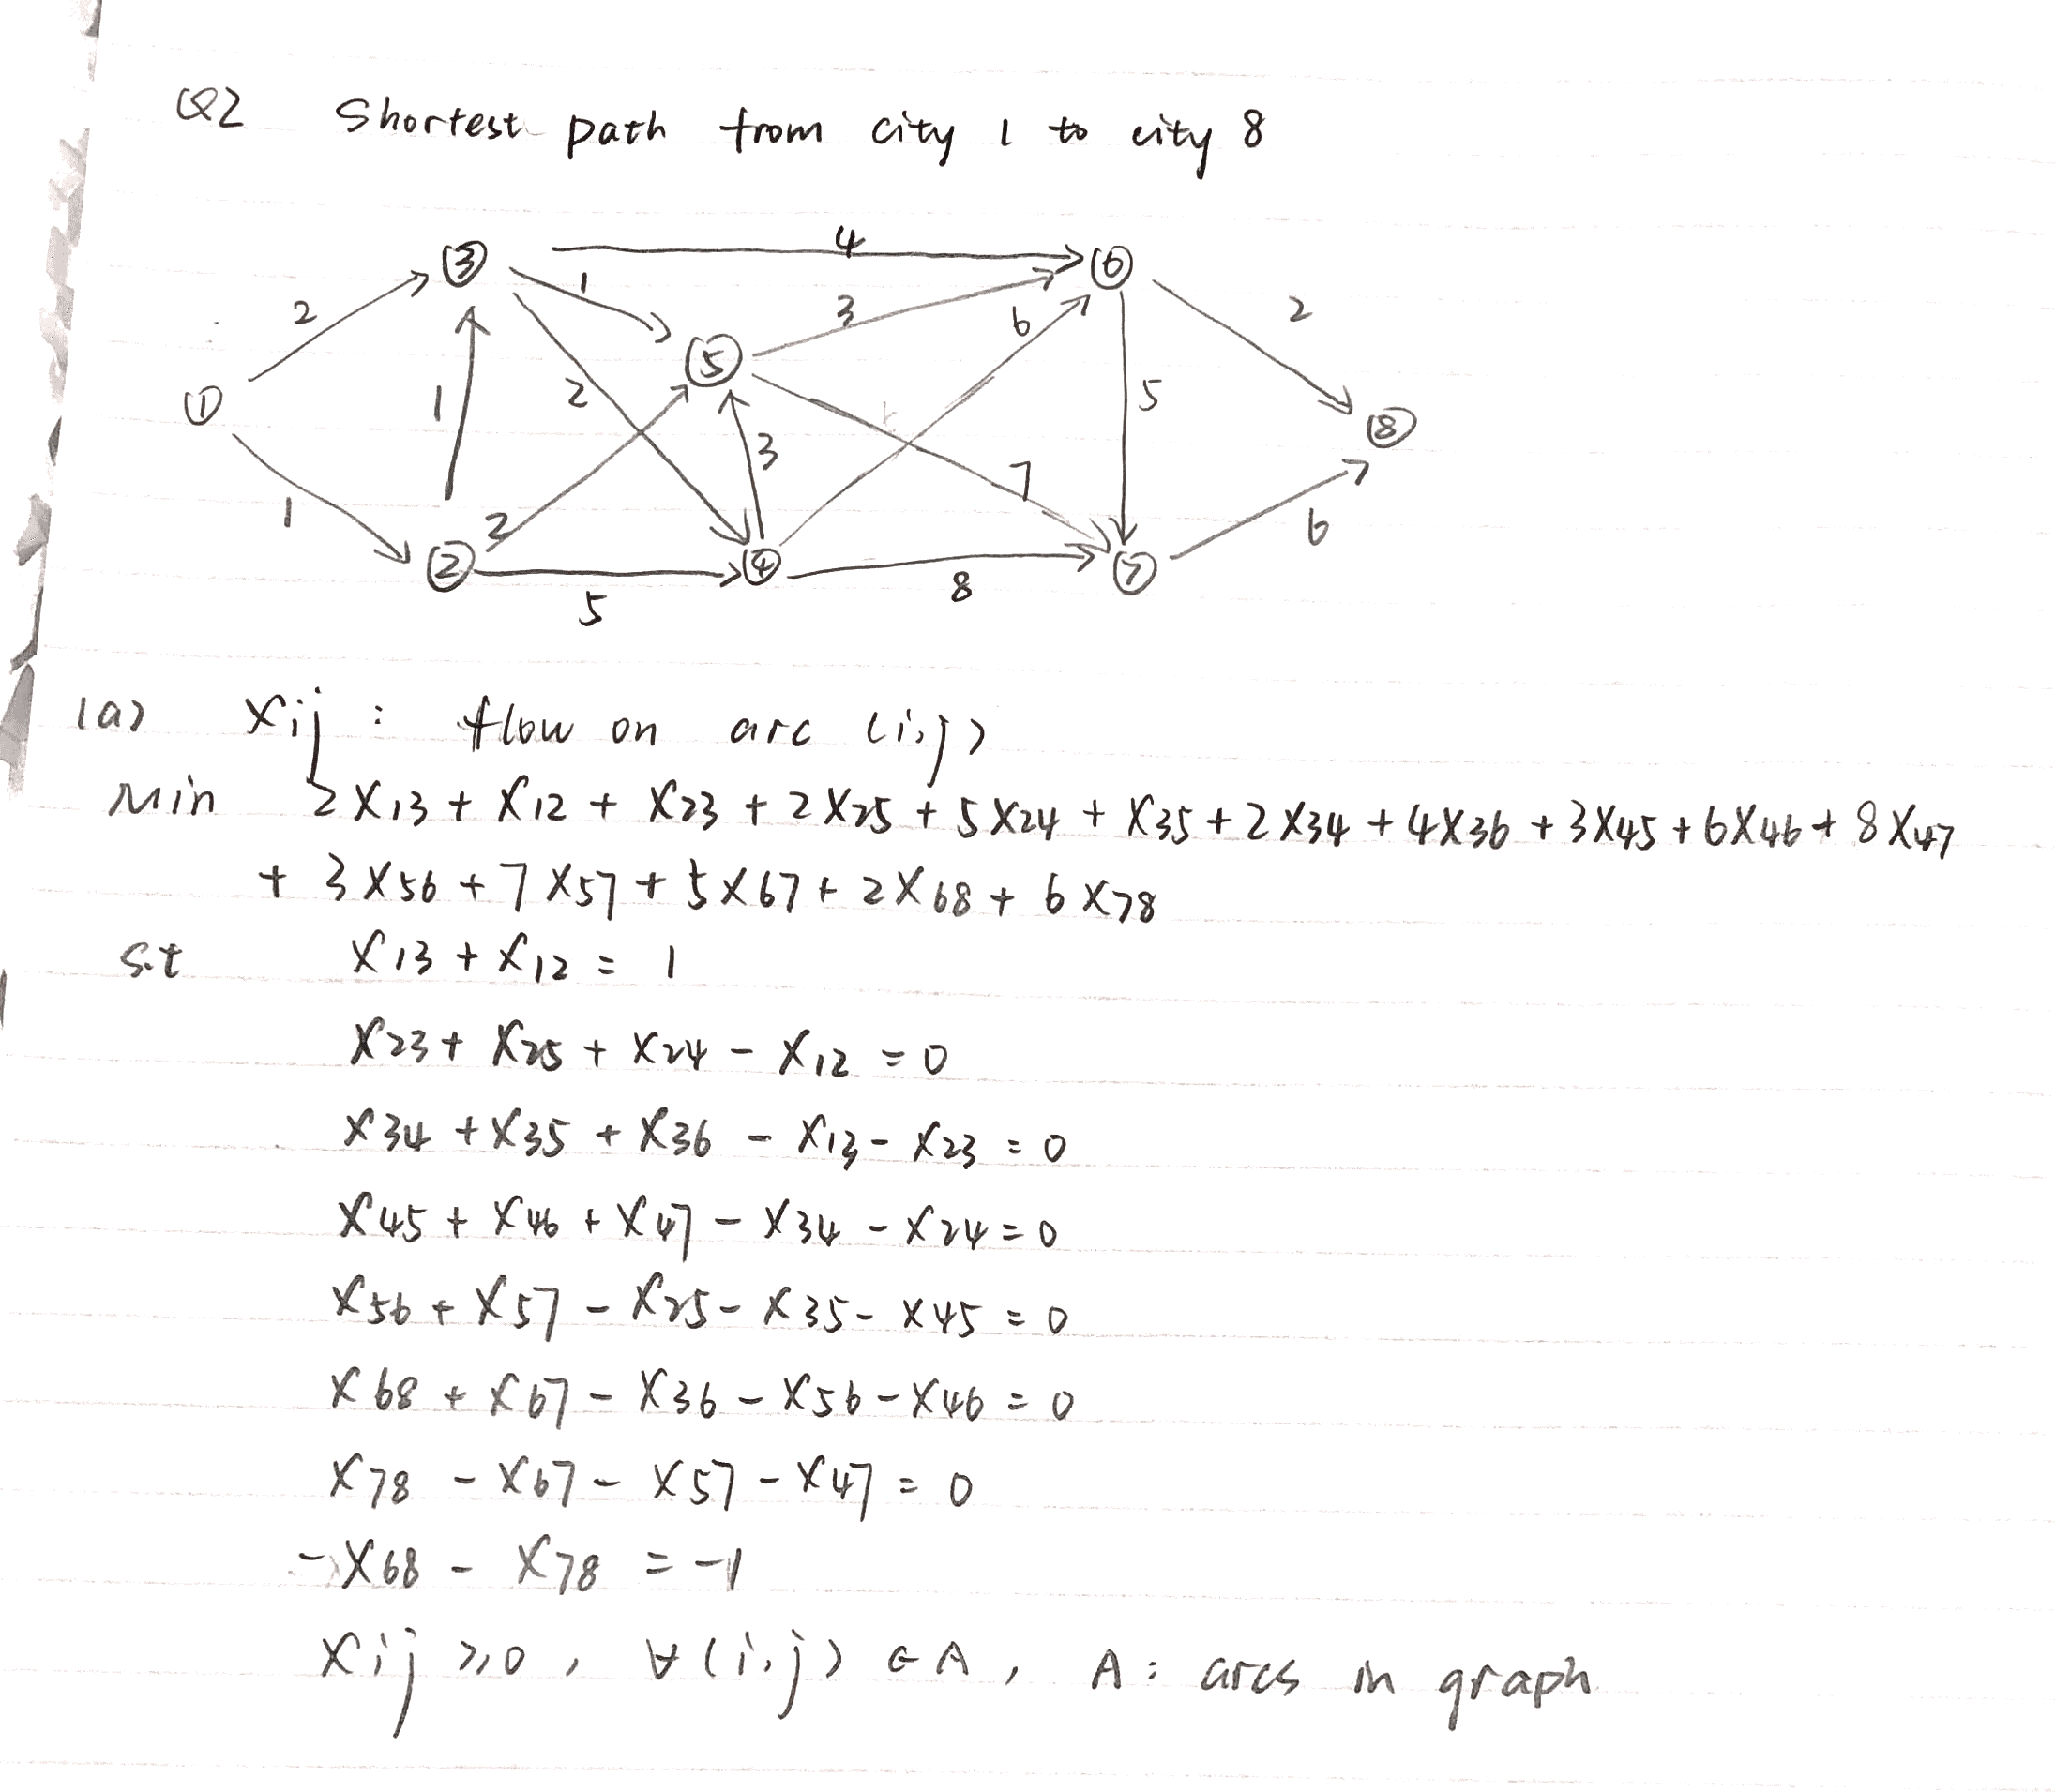 Q2 Shortest path from city 1 to city 8
4
③ ⑥
1
2 3 2
6
⑤
① 1 2 5 ⑧
3
7
1 2 6
② ④ ⑦
5 8
(a) Xij : flow on arc (i,j)
Min 2X13 + X12 + X23 + 2X25 + 5X24 + X35 + 2X34 + 4X36 + 3X45 + 6X46 + 8X47
+ 3X56 + 7X57 + 5X67 + 2X68 + 6X78
s.t X13 + X12 = 1
X23 + X25 + X24 - X12 = 0
X34 + X35 + X36 - X13 - X23 = 0
X45 + X46 + X47 - X34 - X24 = 0
X56 + X57 - X25 - X35 - X45 = 0
X68 + X67 - X36 - X56 - X46 = 0
X78 - X67 - X57 - X47 = 0
-X68 - X78 = -1
Xij ≥ 0 , ∀ (i,j) ∈ A , A : arcs in graph